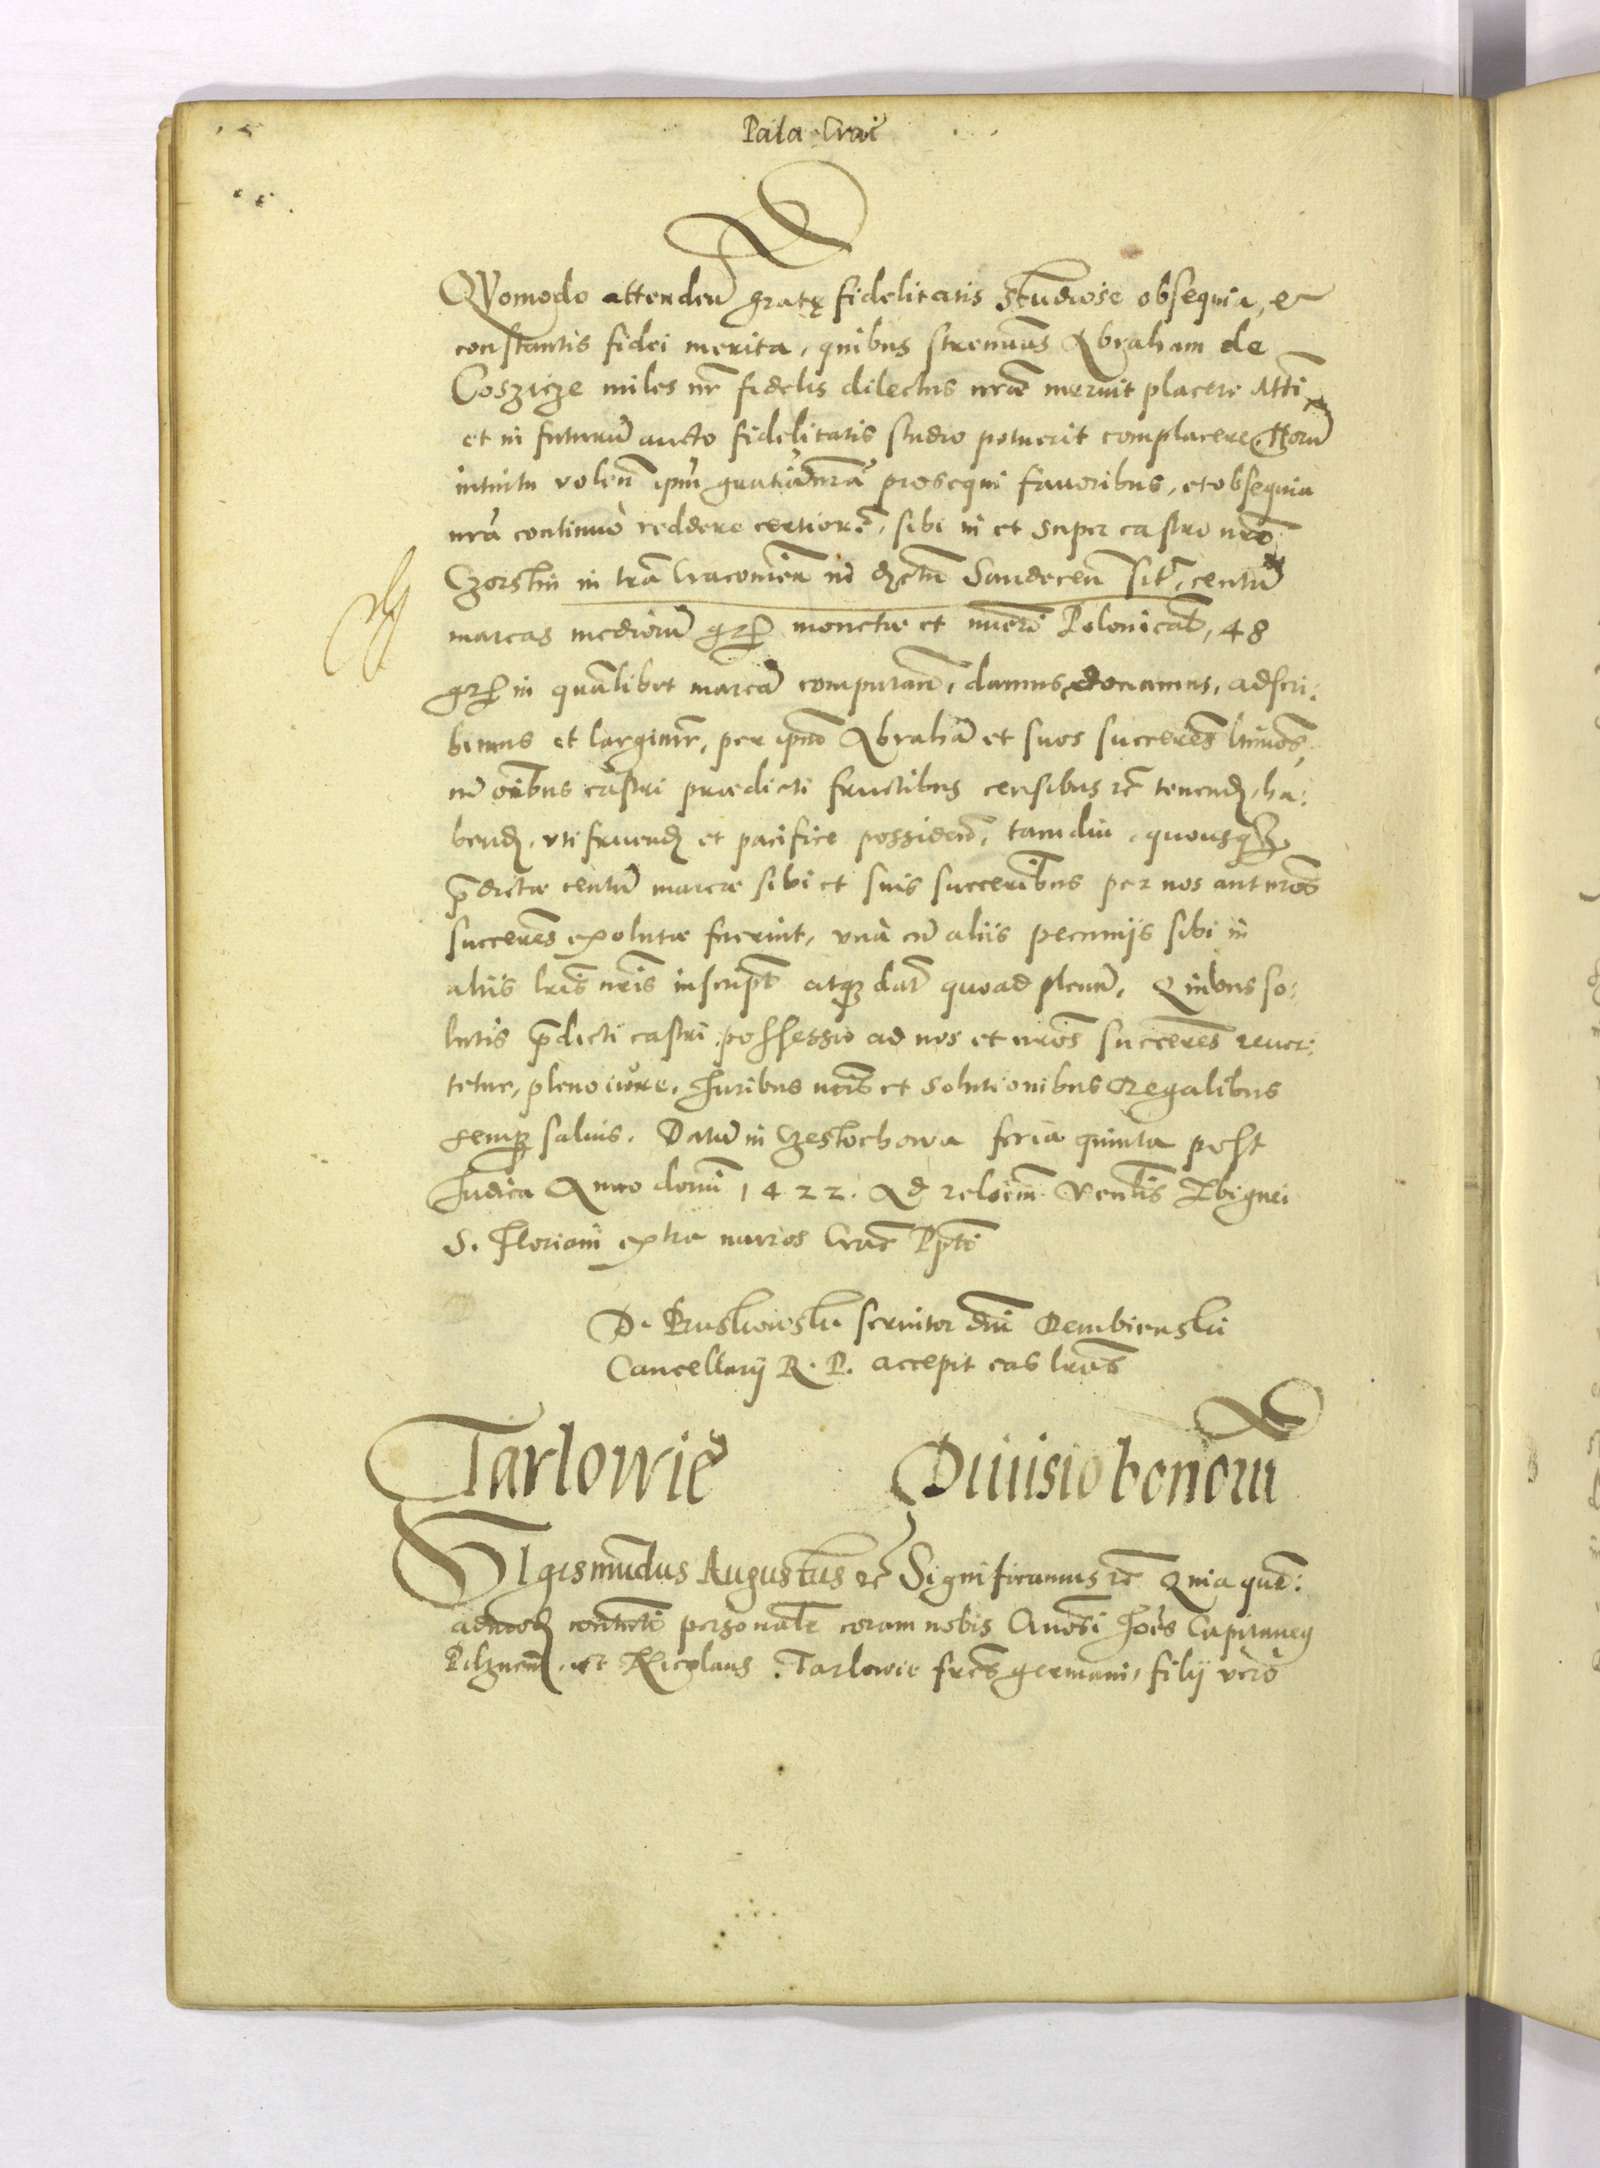 Pala Crac̃
QVomodo attendeñ gratę fidelitatis studiose obsequia, et
constantis fidei merita, quibus strenuus Abraham de
Coszicze miles nr̃ fidelis dilectus nr̃ae meruit placere Mtti
et in futurũ aucto fidelitatis studio potuerit complacere. Horũ
intuitu volen̄ ipm̃ gratia nr̃a prosequi favoribus, et obsequia
nr̃a continuò reddere certiorẽ, sibi in et super castro nrõ
Czorstin in tr̃a Cracovieñ in dẹctu Sandeceñ sit̃, centũ
marcas mediorũ gr̃ monetæ et nũeri Polonicał, 48
gr̃ in quãlibet marcã computañ, damus donamus, adscri:
bimus et largimr̃, per ipm̃ Abrahã et suos succeres̃ ltimos̃,
cũ oĩbus castri prædicti fructibus censibus &c tenend̃, ha:
bend̃, vti fruend̃ et pacifice possideñ, tamdiu, quousq3
p̃dictæ centũ marcæ sibi et suis succerĩbus per nos aut nrõs
succeres̃ exolutæ fuerint, vnà cũ aliis pecuniis sibi in
aliis lr̃is nr̃is inscript̃ atq3 dat̃ quoad plenũ, Quibus so:
lutis p̃dicti castri possessio ad nos et nrõs succeres̃ rever:
tetur, pleno iure, Juribus nr̃is et solutionibus Regalibus
semp̃ salvis. Datũ in Czestochowa feria quinta post
Judica Anno domĩ 1422. Ad reloem̃ Ventis̃ Zbignei
S. Floriani extra muros Crac̃ Pptĩ
D. Pruskowski servitor dñi Dembienski
Cancellarij R. P. accepit eas lr̃as
Tarlowie Diuisio bonorũ
SIgismũdus Augustus &c̃ Significamus &c̃ Quia quẽ:
admod̃ contenti personalr̃ coram nobis Gnosi Joẽs Capitaneus
Pilzneñ, et Nicolaus Tarlowie fres̃ germani, filij verò